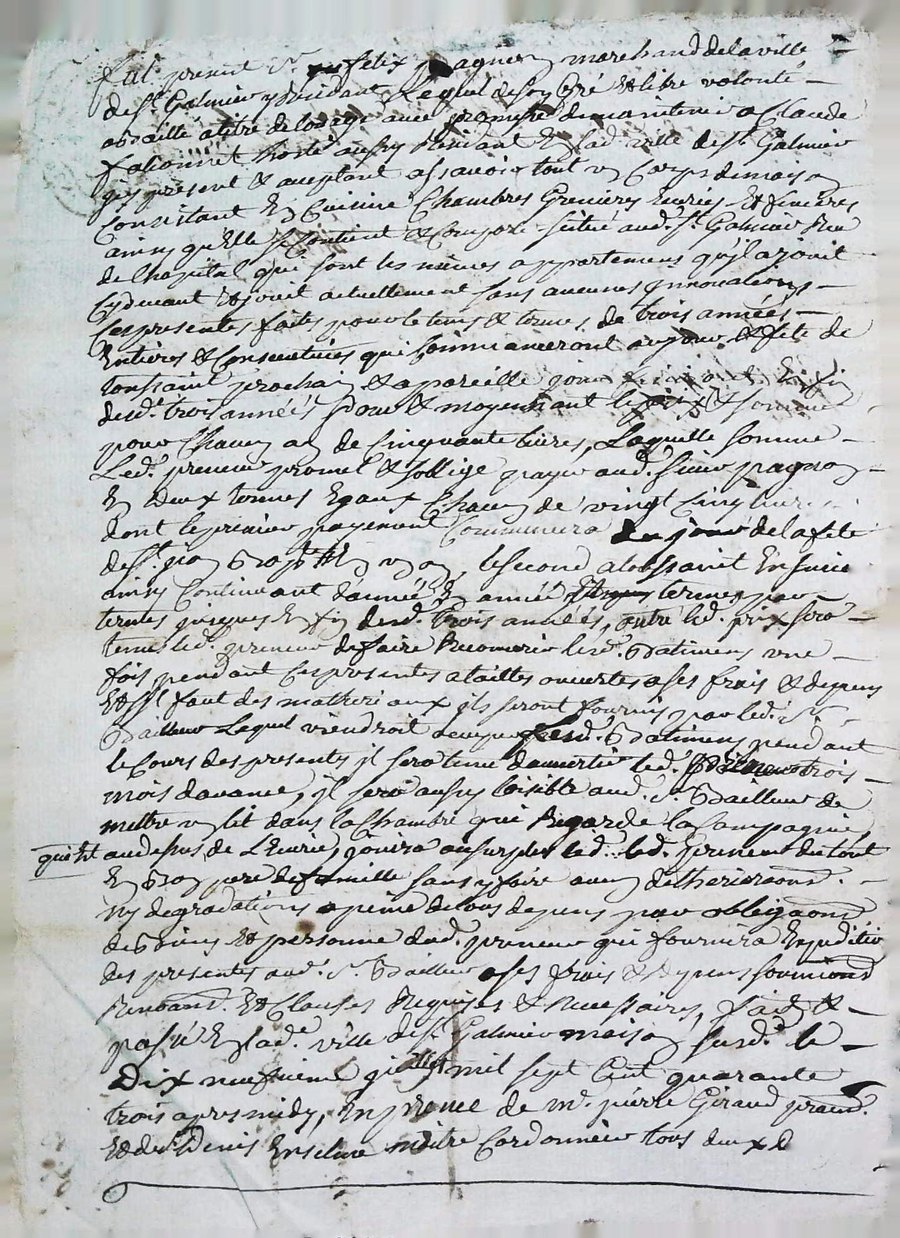 fut present Sr felix pagnon marchand delaville
de St Galmier y residant Lequel de son Gré et libre volonté
abaillé atitre delouage avec promesse de maintenir a Claude
hoste aussy Résidant En lad. ville de St Galmier
icy présent & aceptant assavoir tout un Corps demaison
Consistant En Cuisine Chambres Greniers Ecuries Et fenieres
ainsy qu'Elle se Contient & Comporte situé aud. St Galmier Rue
de lhopital qui sont les mêmes appartemens qu'il a jouit
Cydevant Et jouit actuellement sans aucunes jnnovations
Ces presentes faites pour le tems & terme de trois années
Entières & Consecutives qui Commanceront au jour & fete de
toussaint prochain & apareille jour Enfin
desd. trois années pour & moyennant le prix & somme
pour Chacun an de Cinquante livres, Laquelle somme
Led. preneur promet & soblige payer aud. sieur pagnon
En deux termes Egaux Chacun de vingt Cinq livres
dont le premier payement Commencera du jour de la fete
de St jean Baptiste un an, le second a toussaint Ensuivant
ainsy Continuant dannée En année termes par
termes jusques En fin desd. trois années, outre led. prix sera
tenu led. preneur de faire Recouvrir lesd. Batimens une
fois pendant Ces presentes a tailles ouvertes a ses frais & depens
Et sil faut des matheriaux ils seront fournis par led. Sr
Bailleur Lequel viendroit lesd. Batimens pendant
le Cours des presentes jl sera tenu davertir led. trois
mois davance, jl sera aussy loisible aud. Sr Bailleur de
mettre un lit dans la Chambre qui Regarde la Campagne
qui Est au dessus de L'Ecurie, jouira au surplus led. led. preneur du tout
En Bon pere de famille sans y faire aucun detherioraons
ny degradations a peine de tous depens par obligaons
de Biens Et personne dud. preneur qui fournira Expeditio
des presentes aud. Sr Bailleur a ses frais & depens soumions
Renonaons Et Clauses Requises & necessaires, fait &
passé En lad. ville de St Galmier maison susd. le
Dix neufvieme juillet mil sept Cent quarante
trois apres midy, En presence de Me pierre Giraud
Et de Sr Denis maitre Cordonnier tous deux d